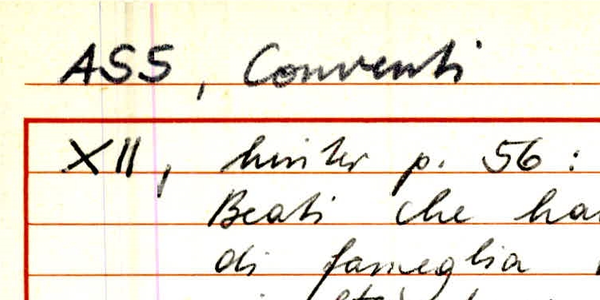 ASS, Conventi
XII, hinter p. 56:
Beati che ha
di fameglia